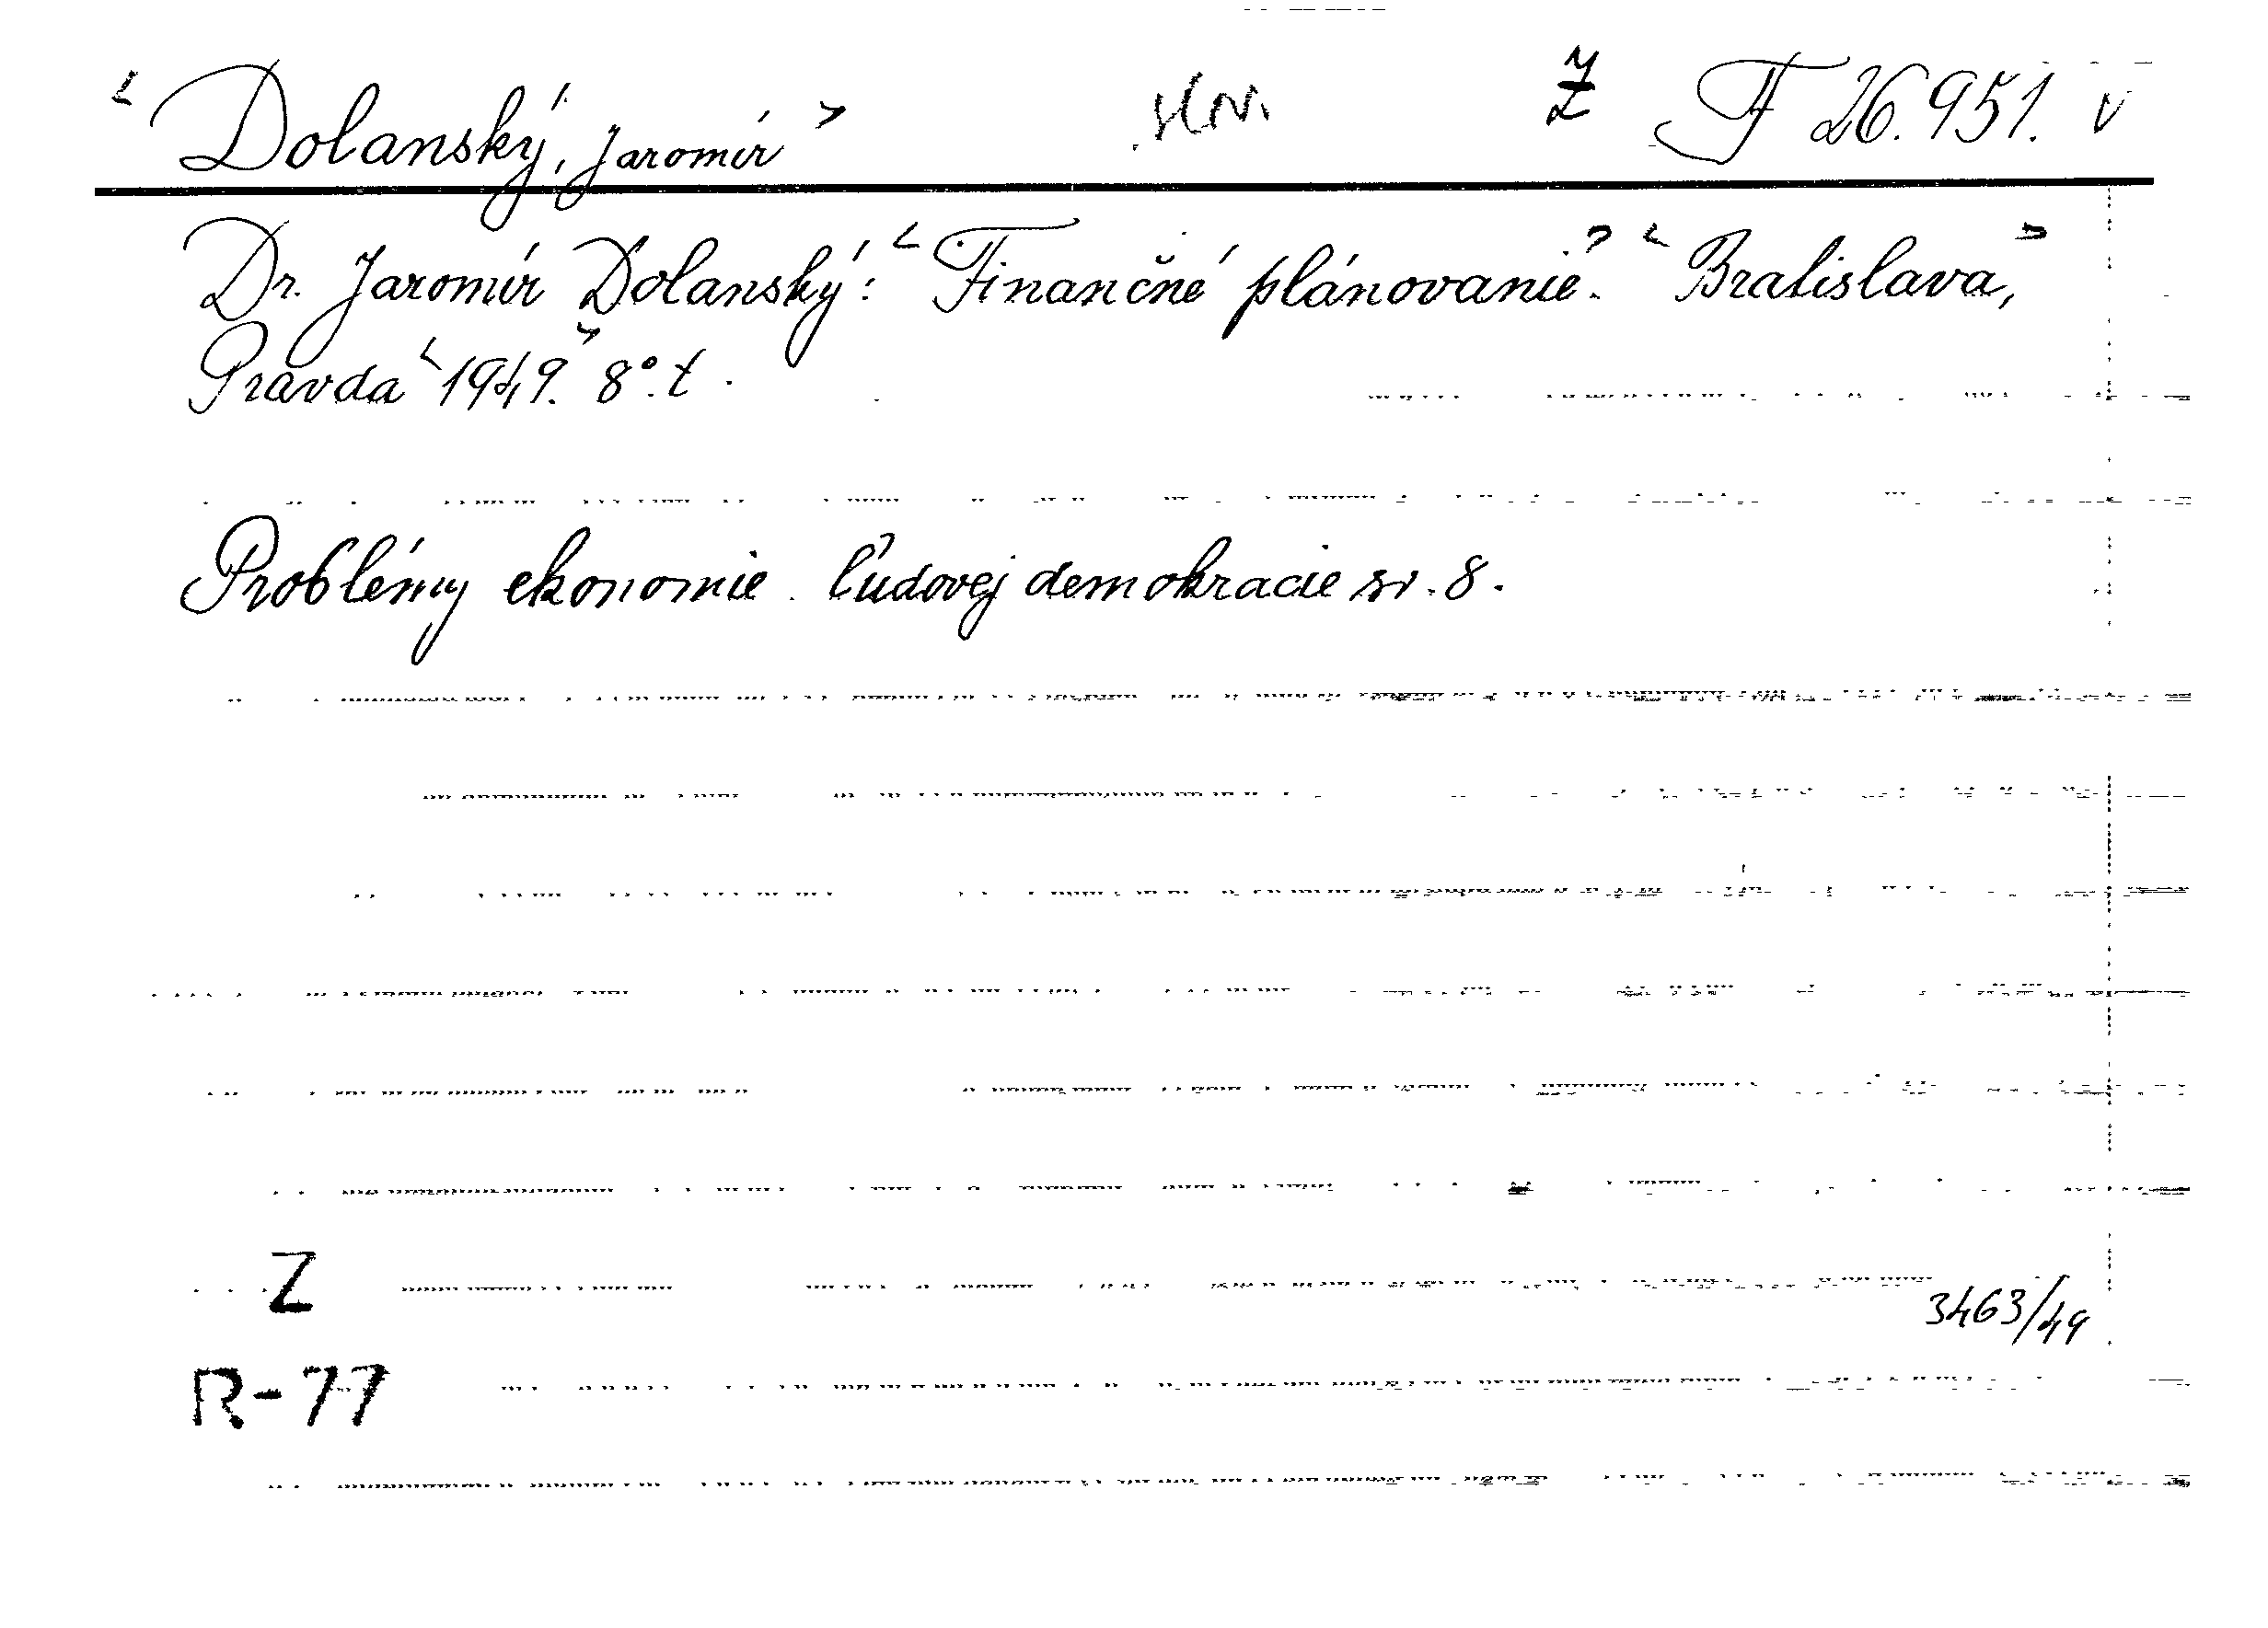 < Dolanský, Jaromír > Z F 26.951. v
Dr. Jaromír Dolanský: < Finančné plánovanie. > < Bratislava, >
Pravda < 1949. > 8°. t.
Problémy ekonomie ľudovej demokracie sv. 8.
Z
3463/49
R-77